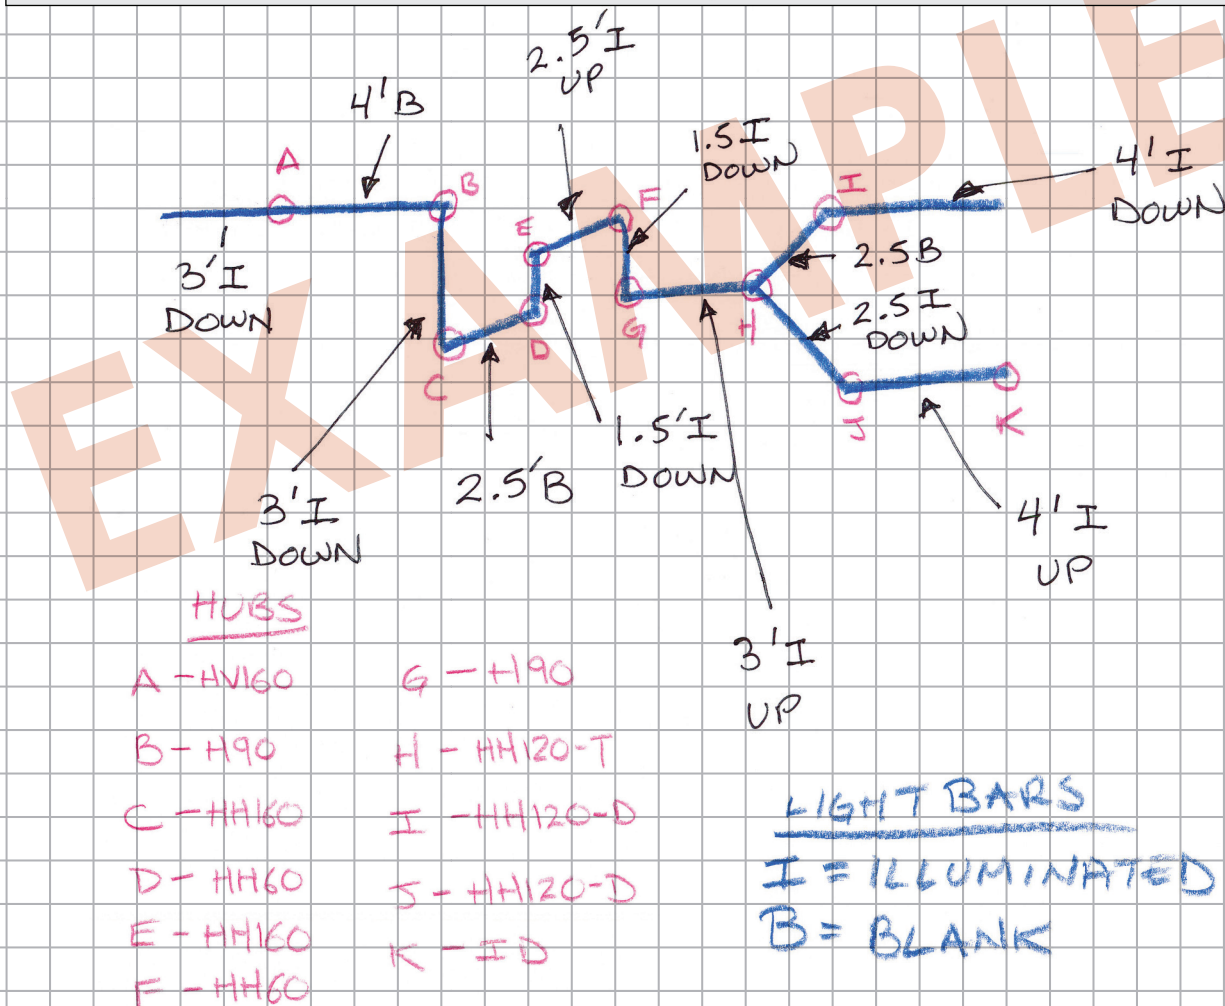 EXAMPLE
2.5'I
UP
4'B
A
B
1.5I
DOWN
F
I
4'I
DOWN
E
3'I
DOWN
2.5B
2.5I
DOWN
C
D
G
H
J
K
3'I
DOWN
2.5'B
1.5'I
DOWN
4'I
UP
3'I
UP
HUBS
A - HV160
B - H90
C - HH160
D - HH60
E - HH160
F - HH60
G - H90
H - HH120-T
I - HH120-D
J - HH120-D
K - ID
LIGHT BARS
I = ILLUMINATED
B = BLANK